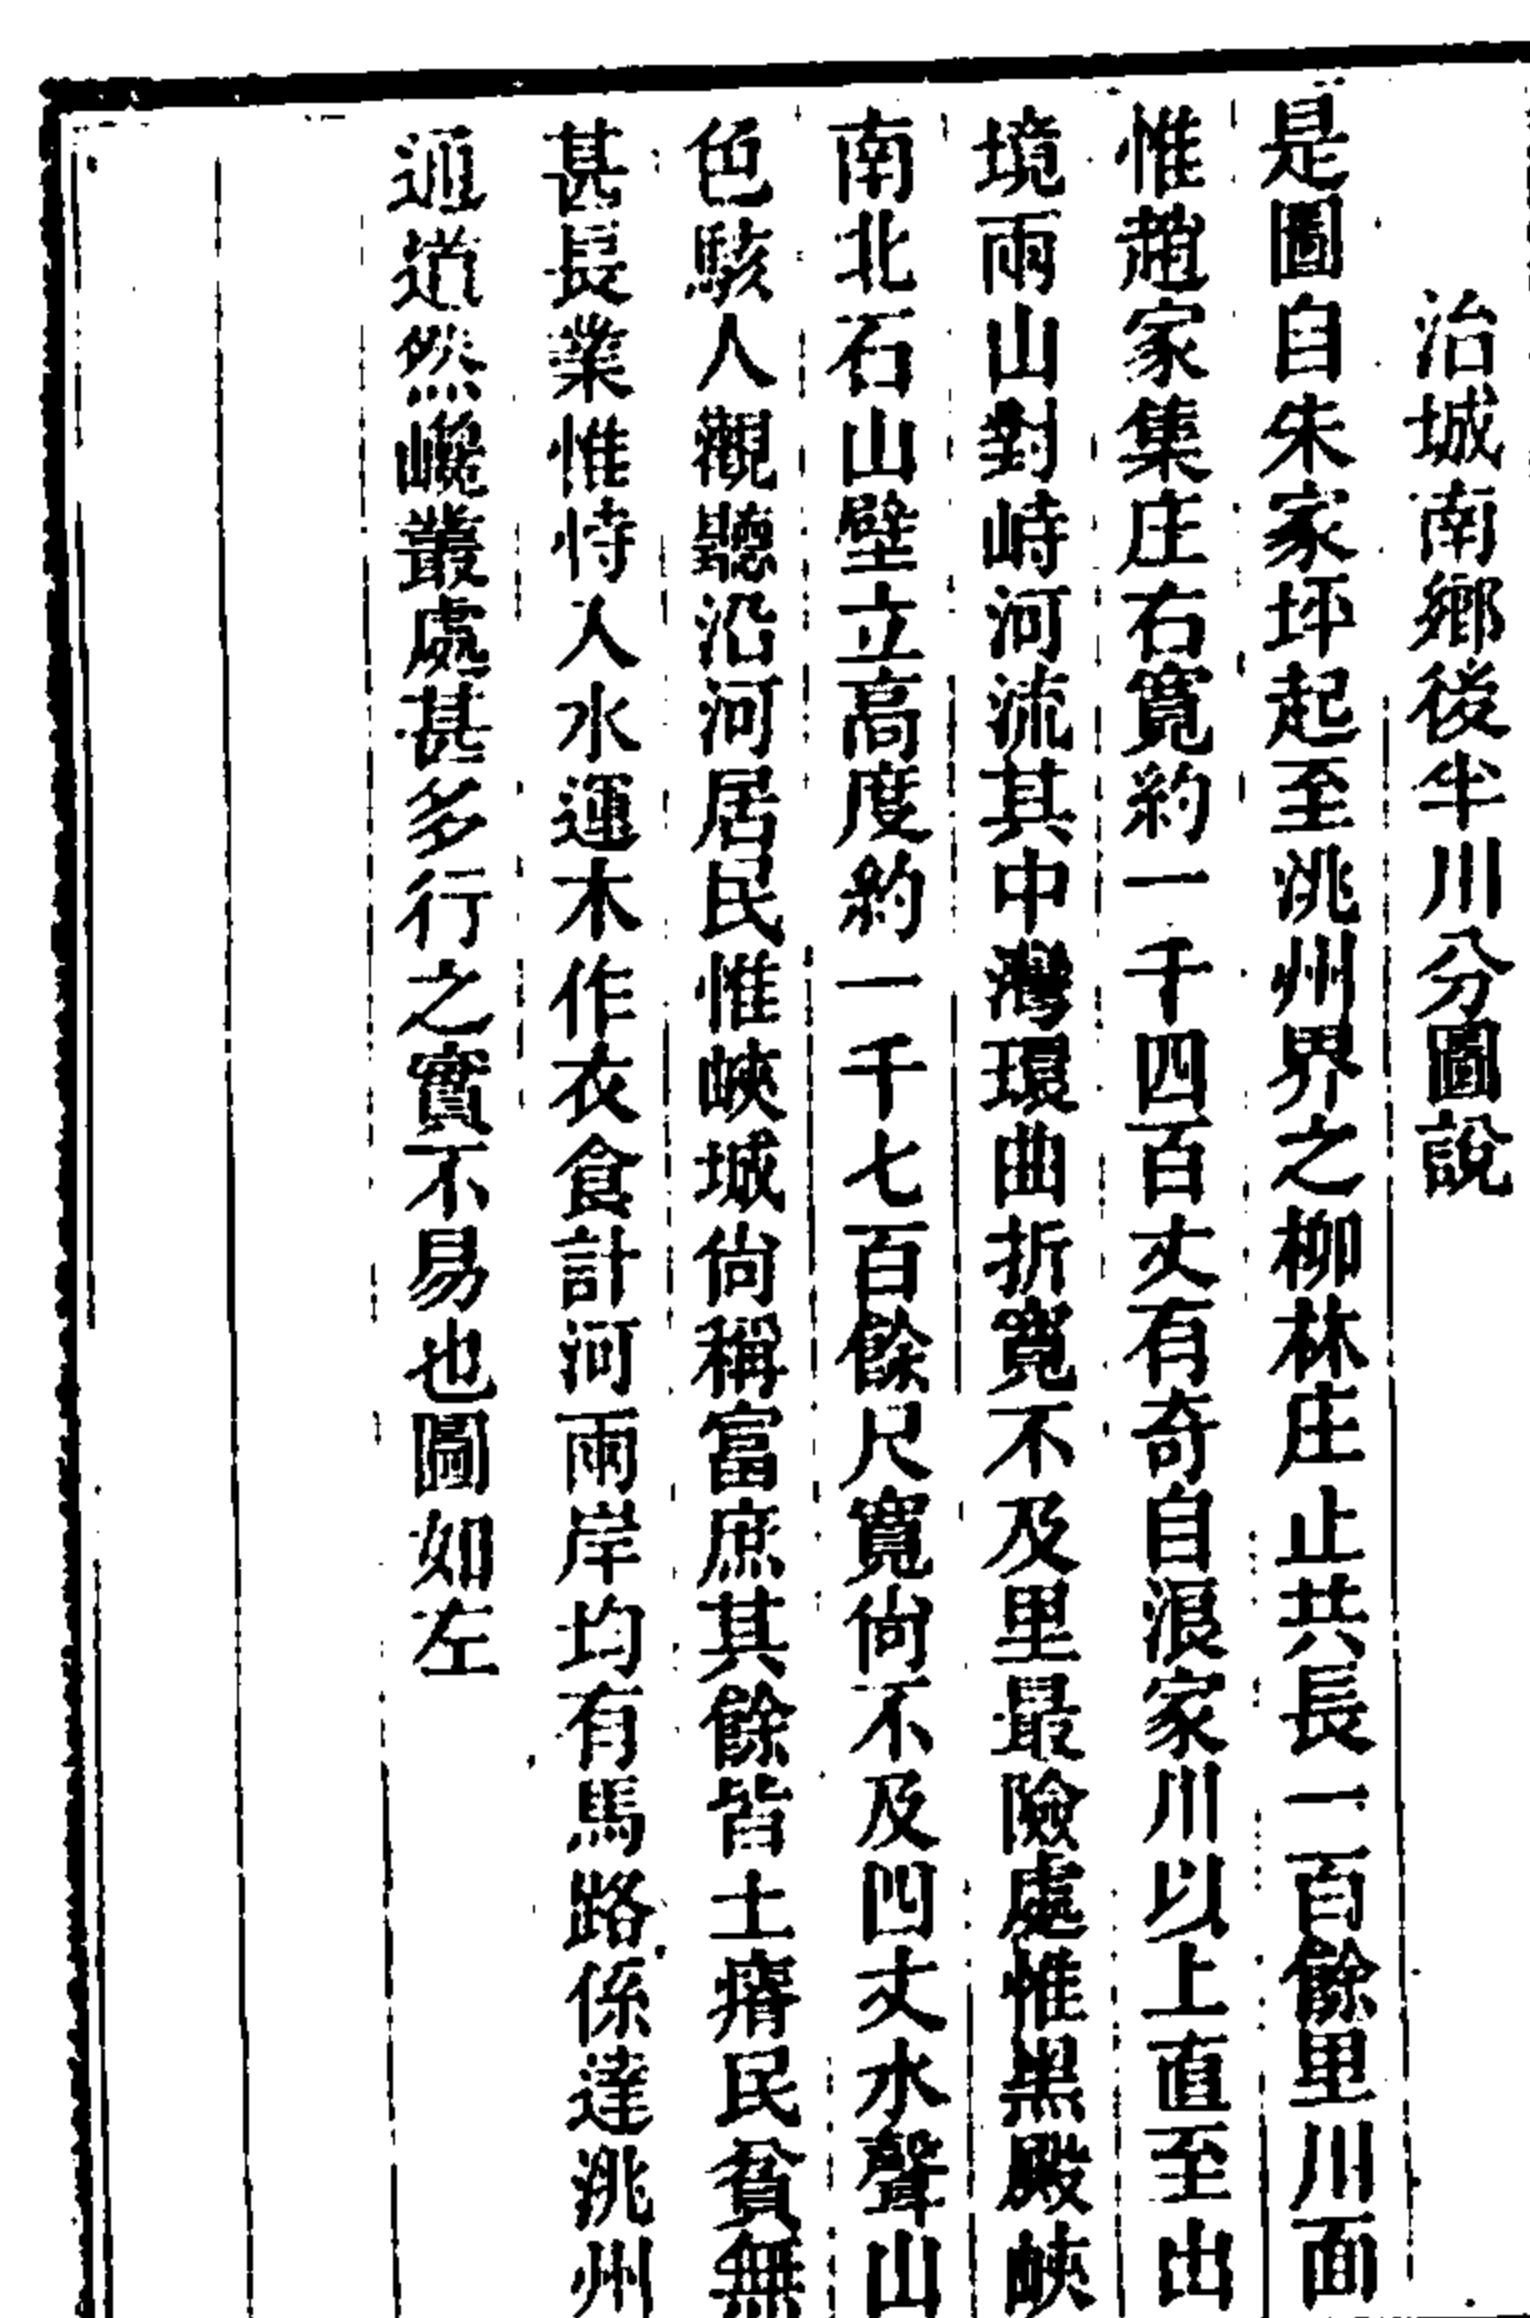 治城南鄉後半川分圖說
是圖自朱家坪起至洮州界之柳林庄止共長一百餘里川面
惟趙家集庄右寬約一千四百丈有奇自浪家川以上直至出
境兩山對峙河流其中灣環曲折寬不及里最險處惟黑殿峽
南北石山壁立高度約一千七百餘尺寬尙不及四丈水聲山
色駭人觀聽沿河居民惟峽城尙稱富庶其餘皆土瘠民貧無
甚長業惟恃入水運木作衣食計河兩岸均有馬路係達洮州
通道然巉叢處甚多行之實不易也圖如左